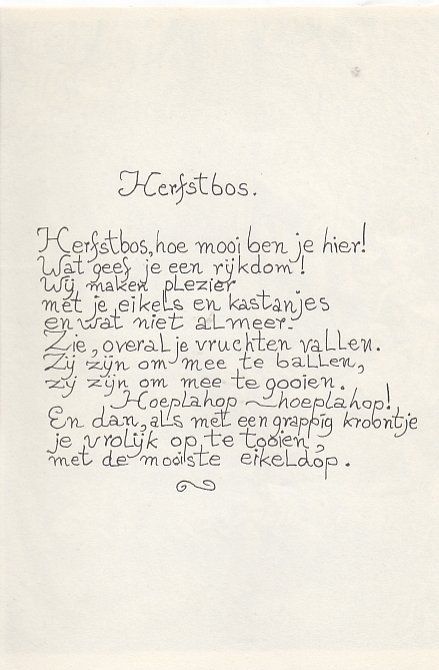 Herfstbos.
Herfstbos, hoe mooi ben je hier!
Wat geef je een rijkdom!
Wij maken plezier
met je eikels en kastanjes
en wat niet al meer.
Zie, overal je vruchten vallen.
Zij zijn om mee te ballen,
zij zijn om mee te gooien.
Hoeplahop ~ hoeplahop!
En dan, als met een grappig kroontje
je vrolijk op te tooien,
met de mooiste eikeldop.